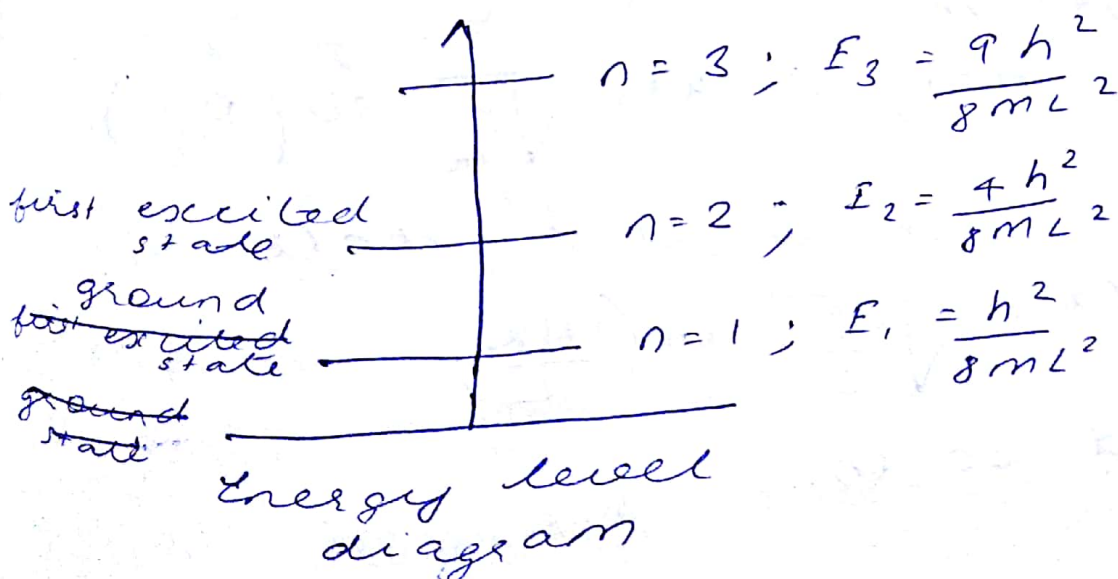 n = 3 ; E₃ = 9h² / 8mL²
first excited
state
n = 2 ; E₂ = 4h² / 8mL²
ground
~~first excited~~
state
n = 1 ; E₁ = h² / 8mL²
~~ground~~
~~state~~
Energy level
diagram